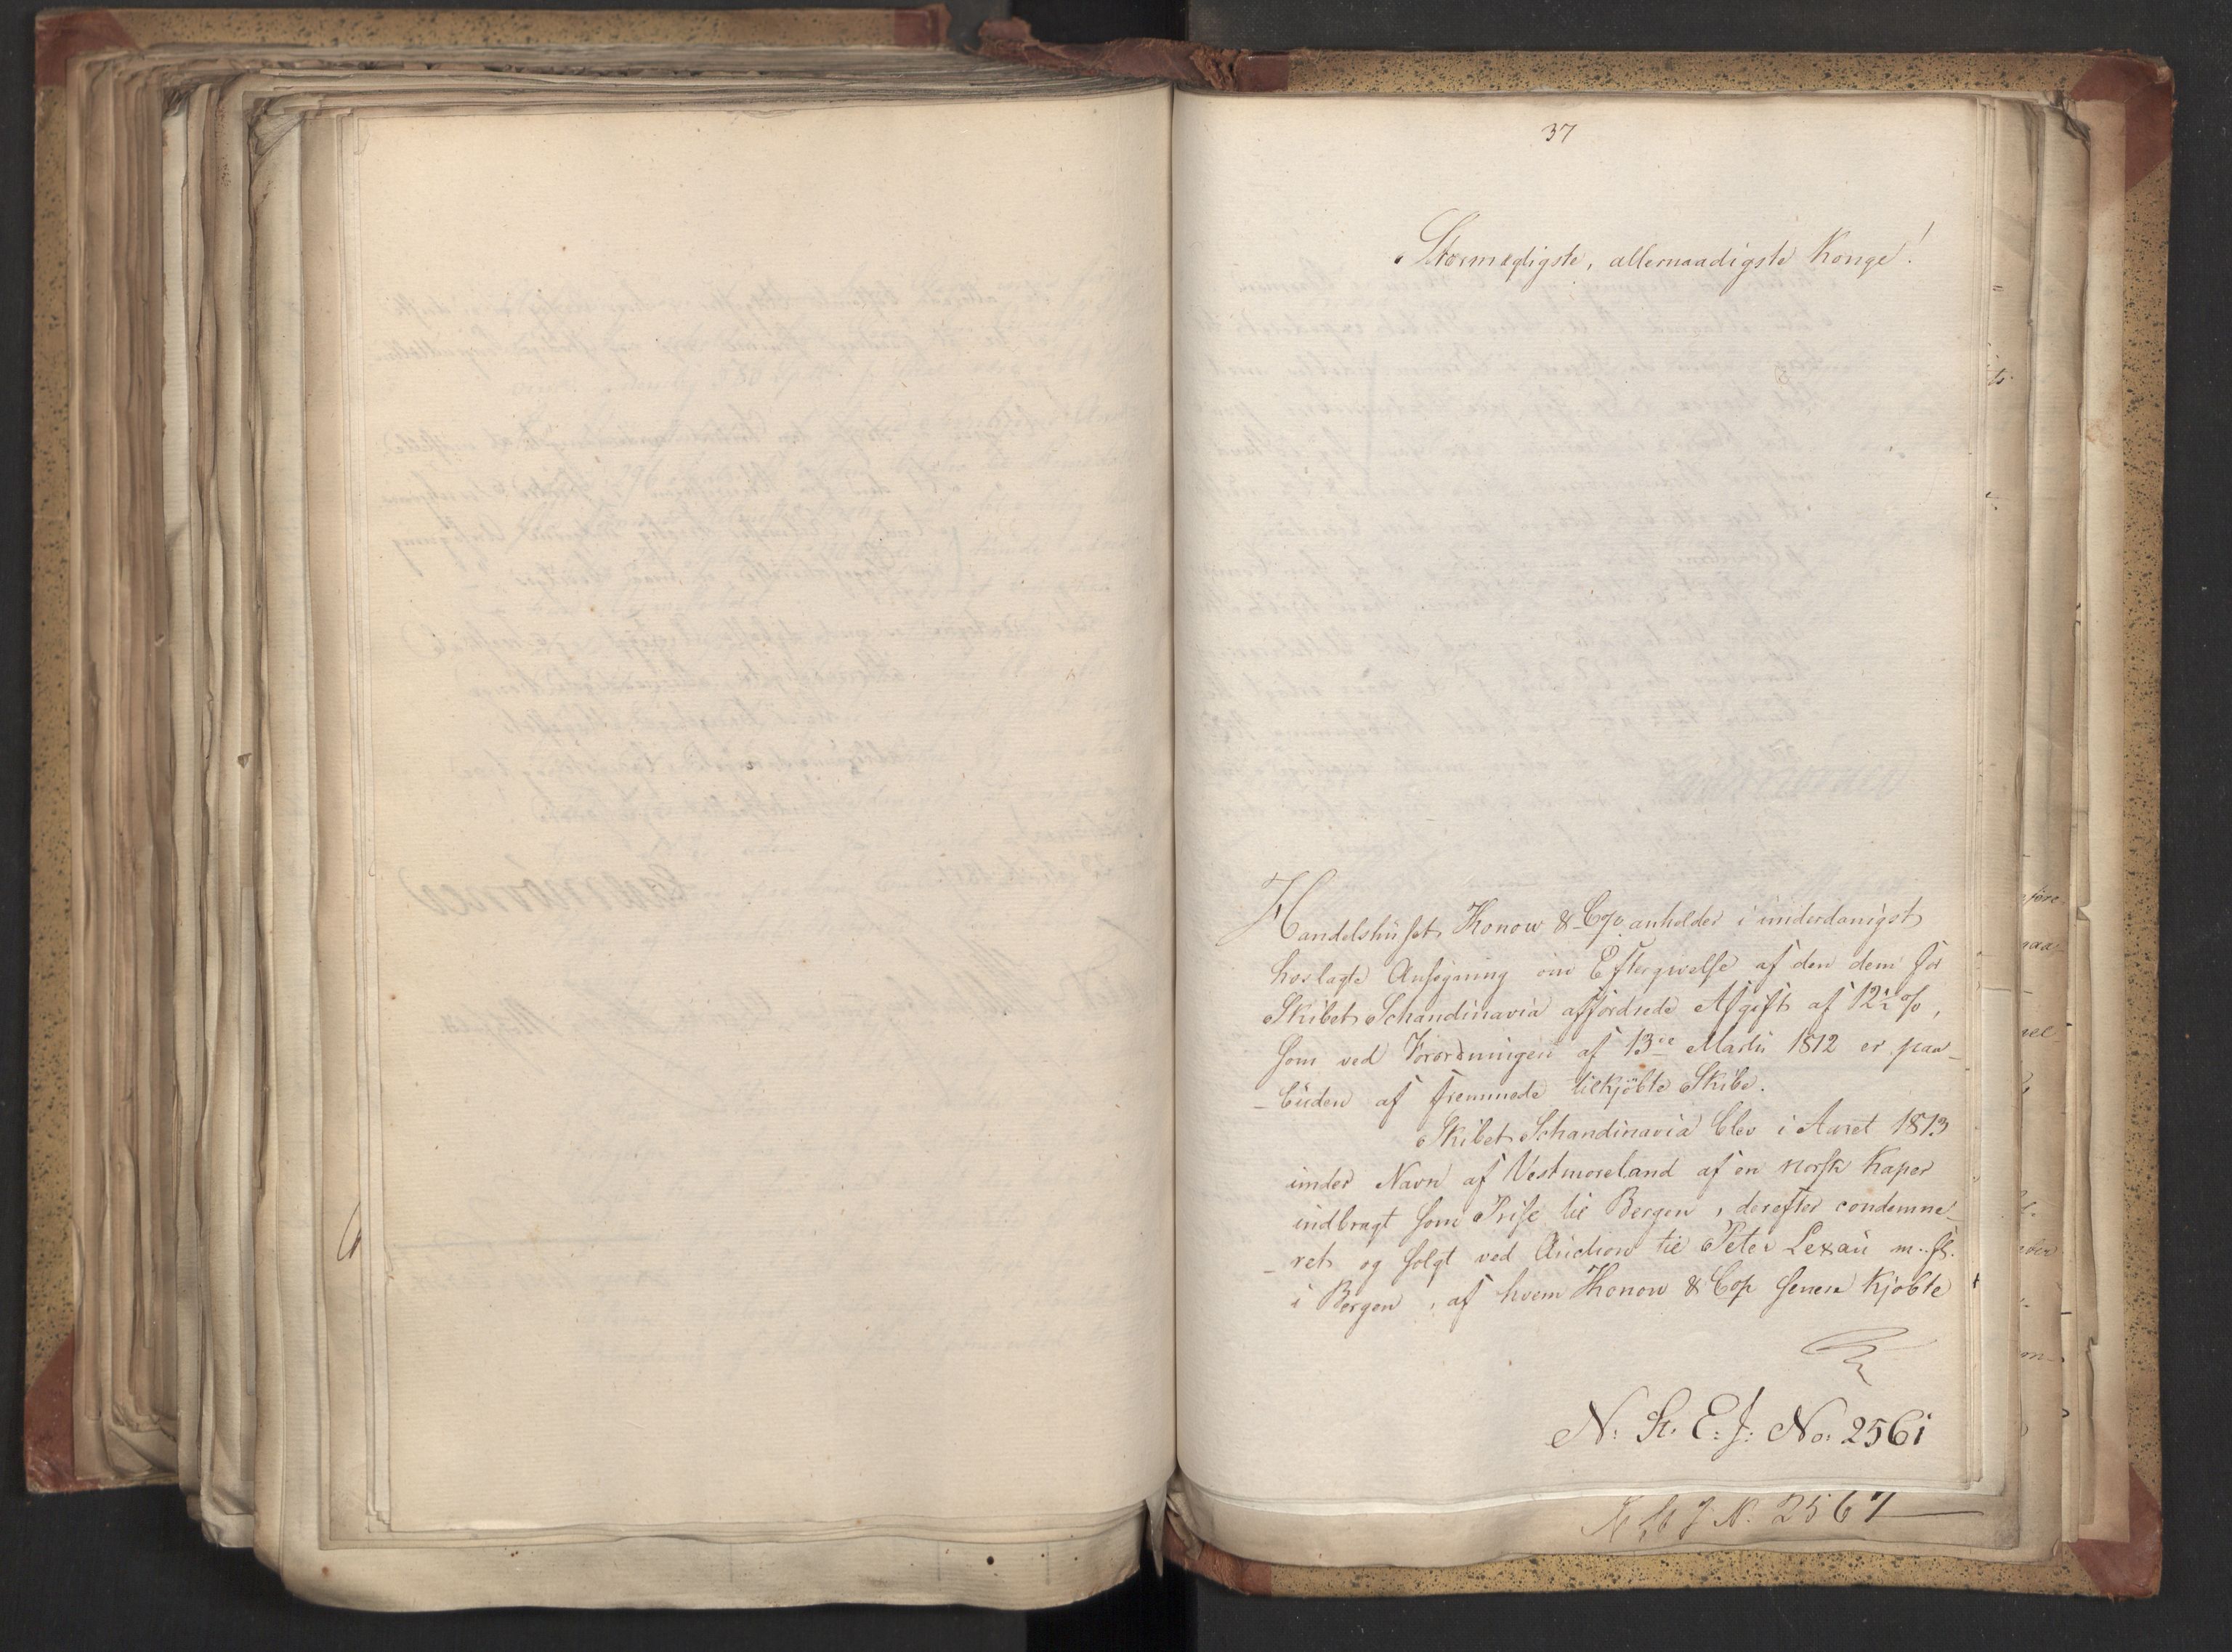 37
Stormægtigste, allernaadigste Konge!
Handelshuset Konow & Cop. anholder i underdanigst
hoslagte Ansøgning om Eftergivelse af den dem for
Skibet Schandinavia affordrede Afgift af 12½ %,
som ved Forordningen af 13de Martii 1812 er paa-
-buden af fremmede tilkjöbte Skibe.
Skibet Schandinavia blev i Aaret 1813
under Navn af Vestmoreland af en norsk Kaper
indbragt som Prise til Bergen, derefter condemne-
-ret og solgt ved Auction til Peter Lexau m. fl.
i Bergen, af hvem Konow & Cop senere kjöbte
N: St. E. J: No: 2561
N. 2567